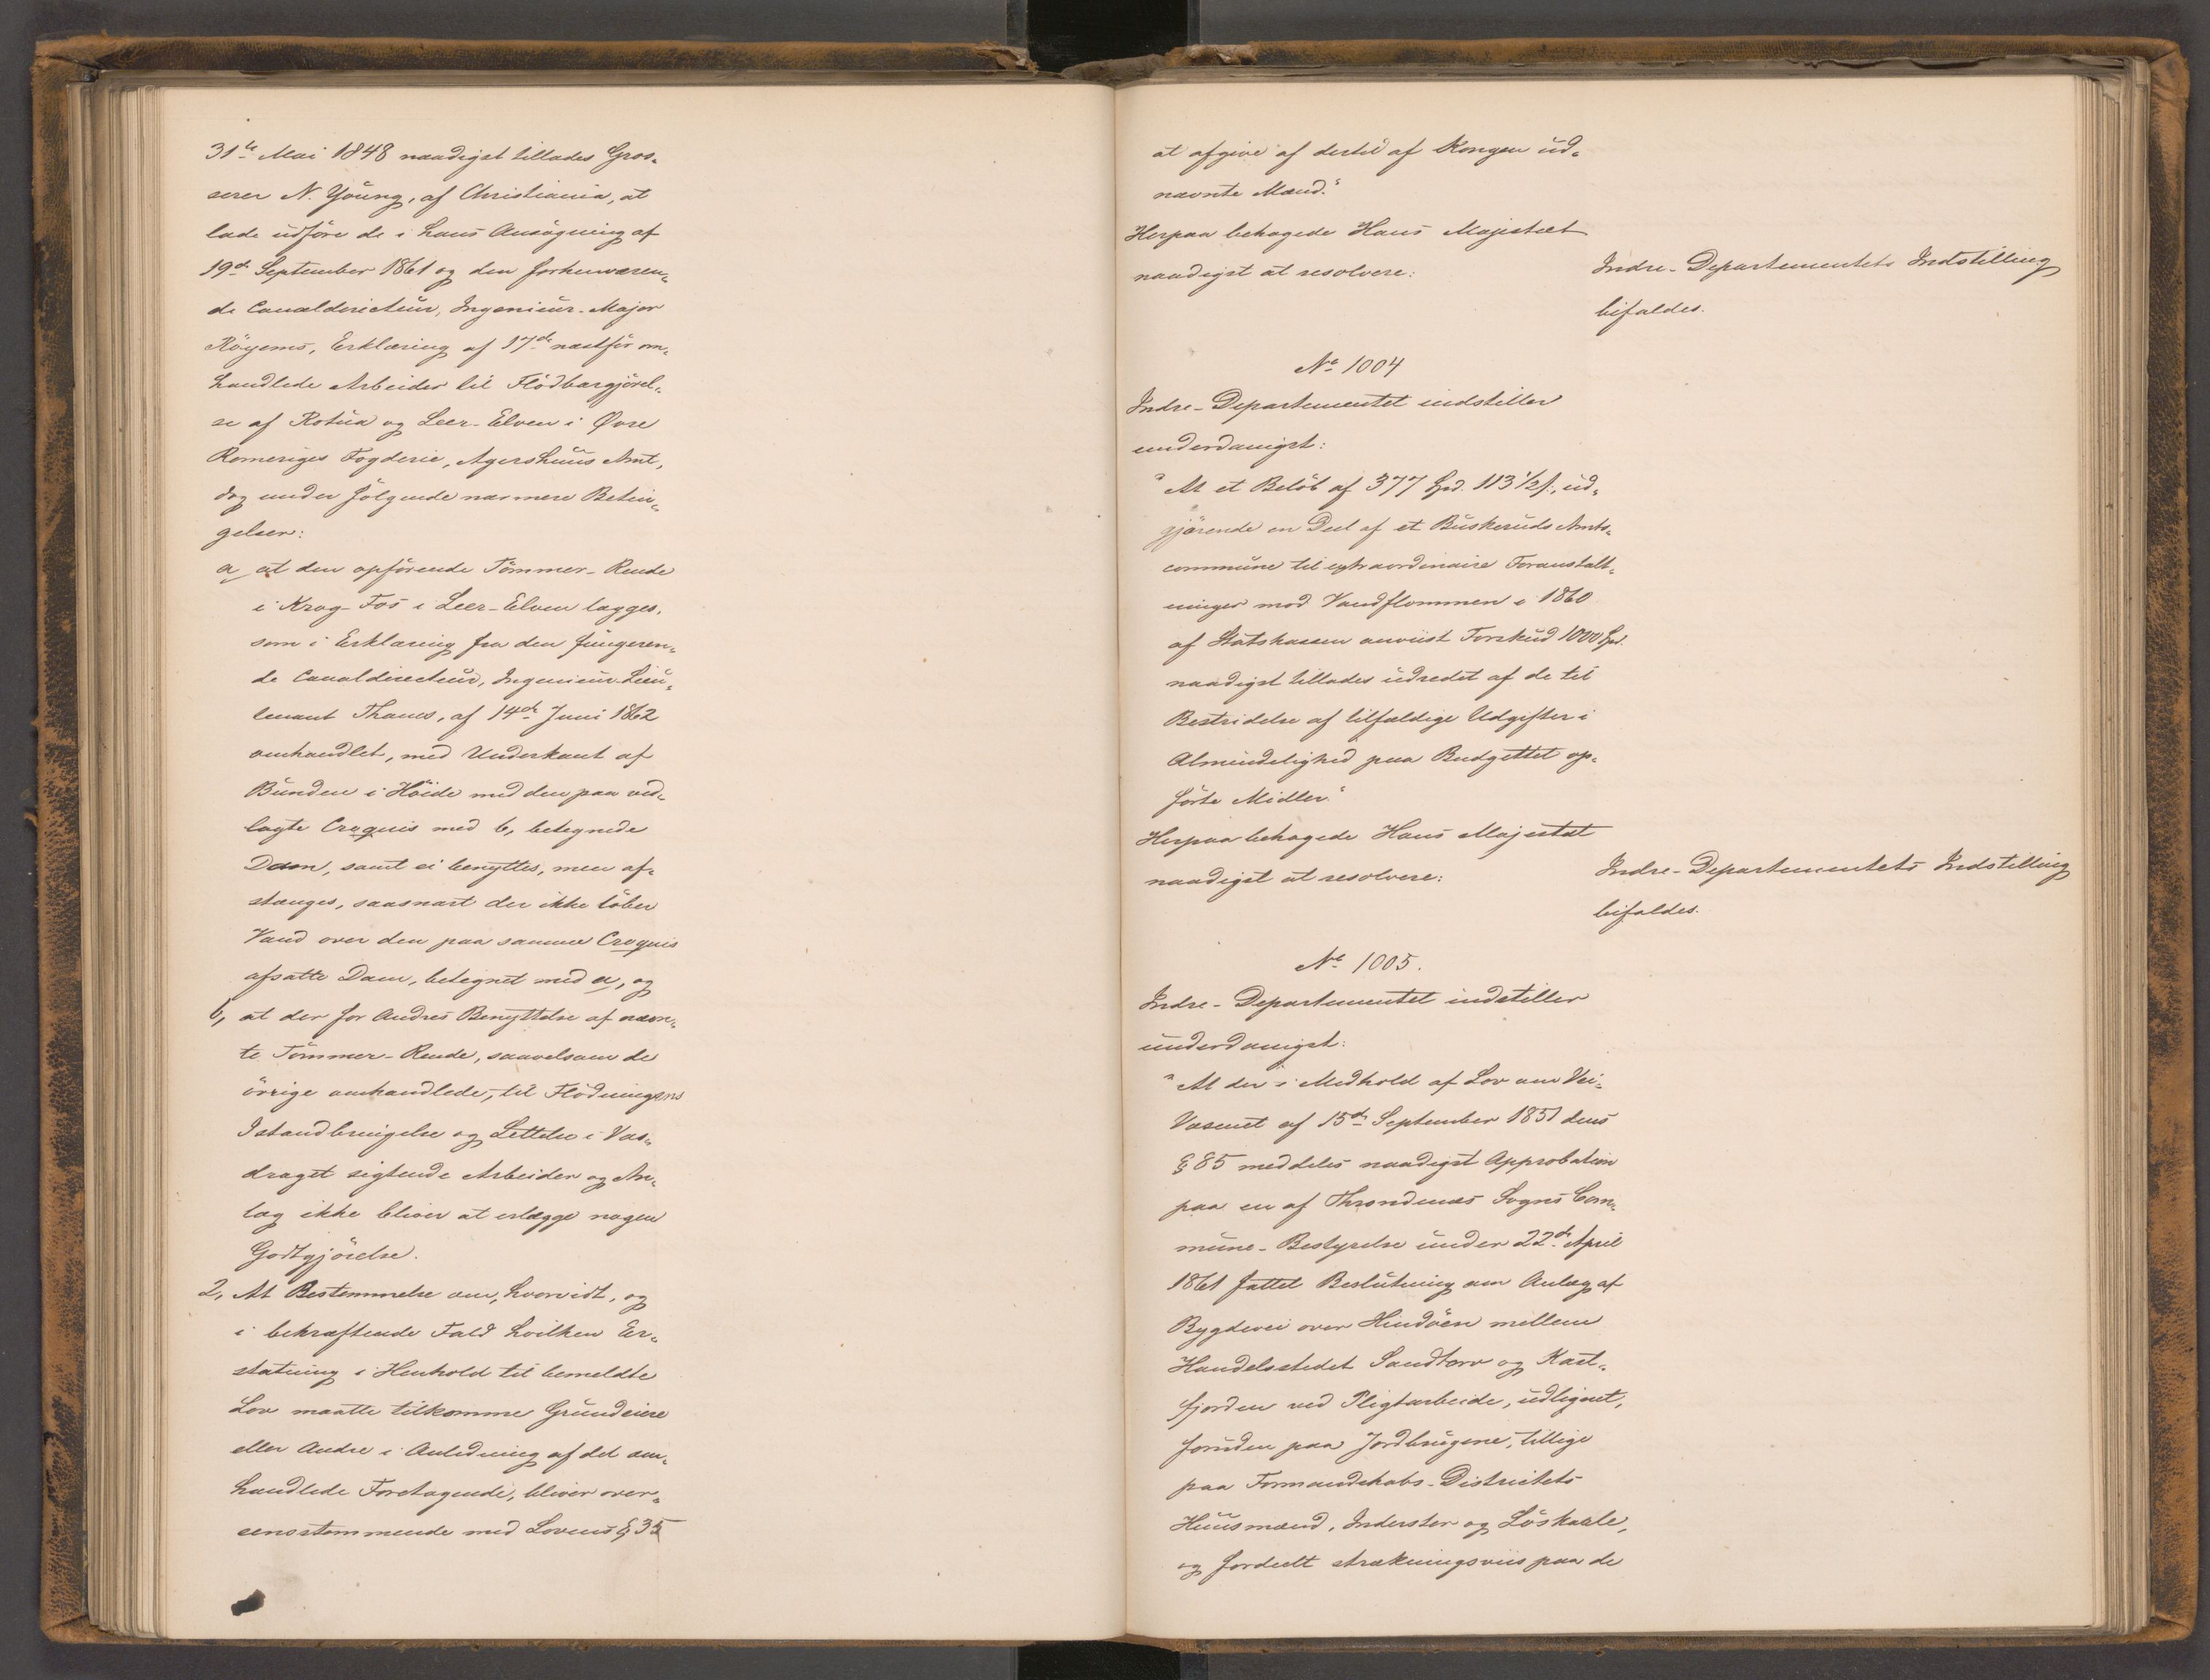 31te Mai 1848 naadigst tillades Gros-
serer N. Young, af Christiania, at
lade udføre de i hans Ansøgning af
19de September 1861 og den forhenværen-
de Canaldirecteur, Ingenieur-Major
Röyems, Erklæring af 17de næstfør om-
handlede Arbeider til Flödbargjörel-
se af Rotua og Leer-Elven i Øvre
Romeriges Fogderie, Agershuus Amt,
dog under følgende nærmere Betin-
gelser:
a, at den opførende Tömmer-Rende
i Krog-Fos i Leer-Elven lægges,
som i Erklæring fra den fungeren-
de Canaldirecteur, Ingenieur-Lieu-
tenant Thams, af 14de Juni 1862
omhandlet, med Underkant af
Bunden i Höide med den paa ved-
lagte Croquis med b, betegnede
Dam, samt ei benyttes, men af-
stænges, saasnart der ikke löber
Vand over den paa samme Croquis
afsatte Dam, betegnet med a, og
b, at der for Andres Benyttelse af nævn-
te Tömmer-Rende, saavelsom de
övrige omhandlede, til Flödningens
Istandbringelse og Lettelse i Vas-
draget sigtende Arbeider og An-
læg ikke bliver at erlægge nogen
Godtgjörelse.
2, At Bestemmelse om, hvorvidt, og
i bekræftende Fald hvilken Er-
statning i Henhold til bemeldte
Lov maatte tilkomme Grundeiere
eller Andre i Anledning af det om-
handlede Foretagende, bliver over-
eensstemmende med Lovens § 35
at afgive af dertil af Kongen ud-
nævnte Mænd."
Herpaa behagede Hans Majestæt
naadigst at resolvere:
Indre-Departementets Indstilling
bifaldes.
No 1004
Indre-Departementet indstiller
underdanigst:
"At et Belöb af 377 Spd. 113 1/2 s., ud-
gjörende en Deel af et Buskeruds Amts-
commune til extraordinaire Foranstalt-
ninger mod Vandflommen i 1860
af Statskassen anviist Forskud 1000 Spd.
naadigst tillades udredet af de til
Bestridelse af tilfældige Udgifter i
Almindelighed paa Budgettet op-
førte Midler."
Herpaa behagede Hans Majestæt
naadigst at resolvere:
Indre-Departementets Indstilling
bifaldes.
No 1005.
Indre-Departementet indstiller
underdanigst:
"At der i Medhold af Lov om Vei-
Væsenet af 15de September 1851 dens
§ 85 meddeles naadigst Approbation
paa en af Throndenæs Sogns Com-
mune-Bestyrelse under 22de April
1861 fattet Beslutning om Anlæg af
Bygdevei over Hindöen mellem
Handelsstedet Sandtorv og Kast-
fjorden ved Pligtarbeide, udlignet,
foruden paa Jordbrugene, tillige
paa Formandskabs-Districtets
Huusmænd, Inderster og Löskarle,
og fordeelt strækningsviis paa de